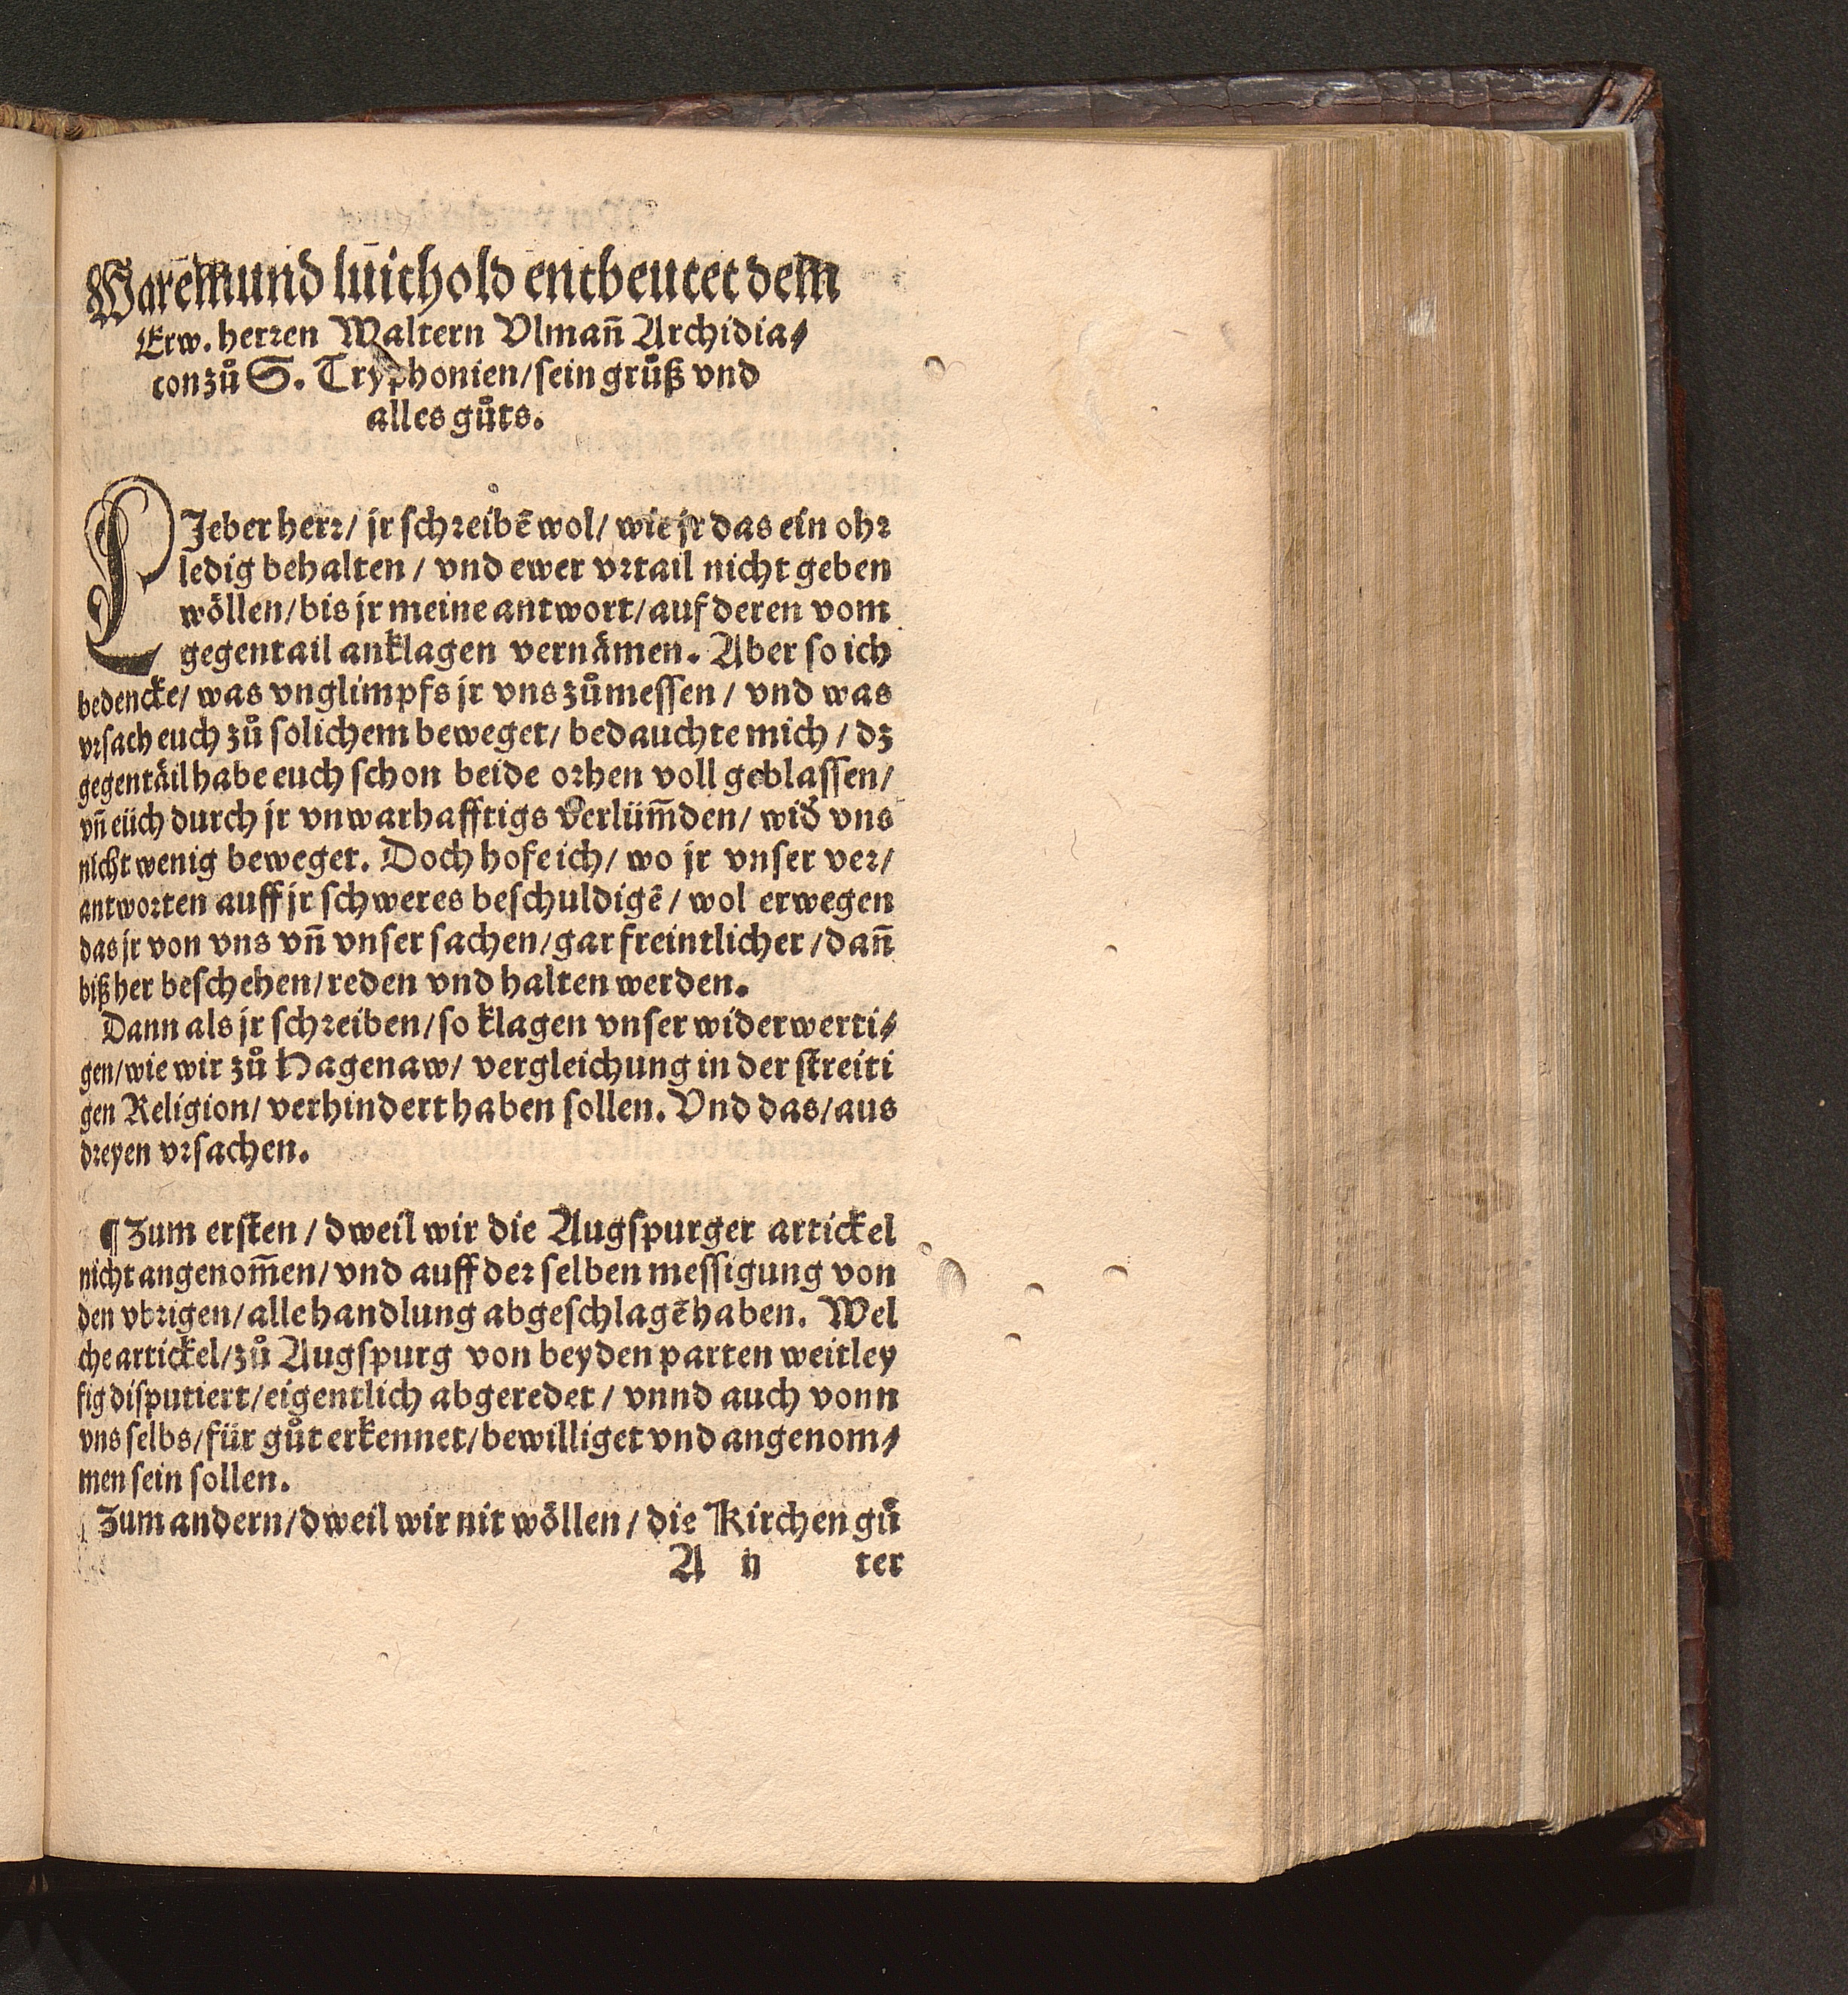 Waremund luithold entbeutet dem
Erw. herren Waltern Vlmañ Archidia⸗
con zů S. Tryphonien/ sein grůß vnd
alles gůts.
LIeber herr/ jr schreibẽ wol/ wie jr das ein ohr
ledig behalten / vnd ewer vrtail nicht geben
wöllen/ bis jr meine antwort/ auf deren vom
gegentail anklagen vernämen. Aber so ich
bedencke/ was vnglimpfs jr vns zůmessen / vnd was
vrsach euch zů solichem beweget/ bedauchte mich / dz
gegentäil habe euch schon beide orhen voll geblassen/
vñ eüch durch jr vnwarhafftigs verlüm̃den/ wid̛ vns
nicht wenig beweget. Doch hofe ich/ wo jr vnser ver/
antworten auff jr schweres beschuldigẽ / wol erwegen
das jr von vns vñ vnser sachen/ gar freintlicher / dañ
biß her beschehen/ reden vnd halten werden.
Dann als jr schreiben/ so klagen vnser widerwerti⸗
gen/ wie wir zů Hagenaw/ vergleichung in der streiti
gen Religion/ verhindert haben sollen. Vnd das/ aus
dreyen vrsachen.
¶ Zum ersten / dweil wir die Augspurger artickel
nicht angenom̃en/ vnd auff der selben messigung von
den vbrigen/ alle handlung abgeschlagẽ haben. Wel
che artickel/ zů Augspurg von beyden parten weitley
fig disputiert/ eigentlich abgeredet / vnnd auch vonn
vns selbs/ für gůt erkennet/ bewilliget vnd angenom⸗
men sein sollen.
¶ Zum andern/ dweil wir nit wöllen / die Kirchen gů
A ij ter